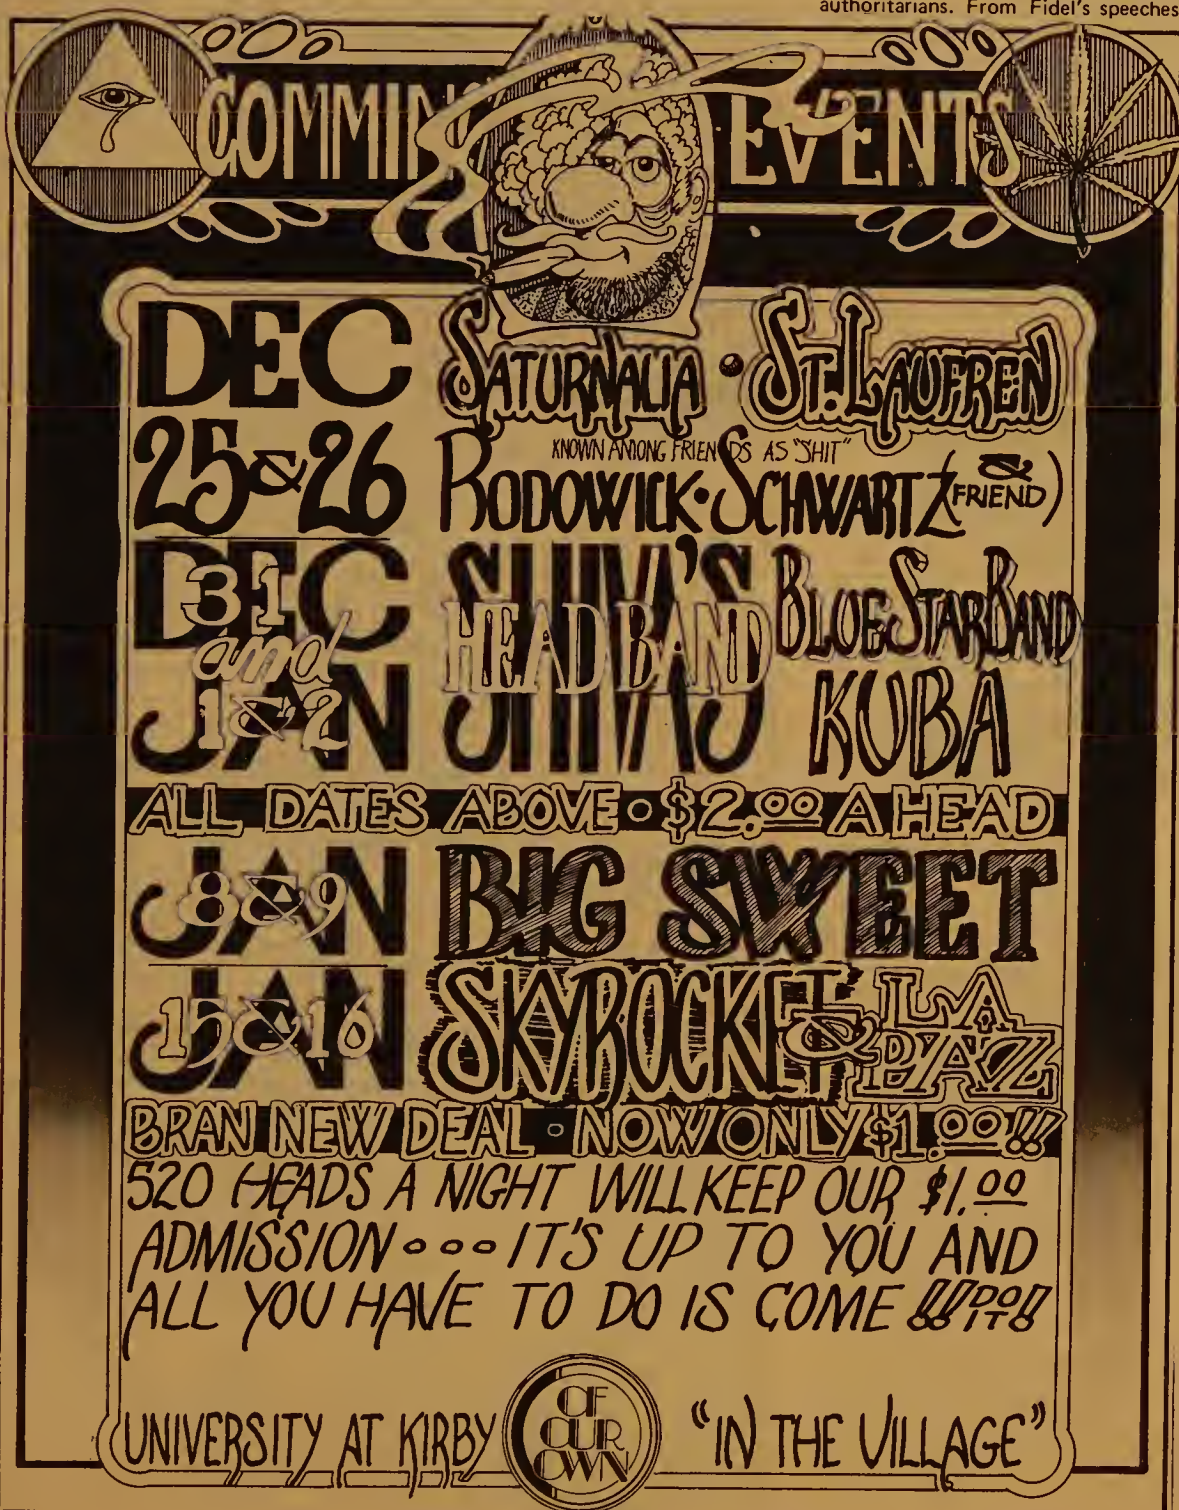 authoritarians. From Fidel's speeches
COMMING EVENTS
DEC
25 & 26
SATURNALIA • ST. LAUFREN
KNOWN AMONG FRIENDS AS "SHIT"
RODOWICK • SCHWARTZ (& FRIEND)
DEC
31
and
JAN
1 & 2
SHIVA'S
HEAD BAND
BLUE STAR BAND
KUBA
ALL DATES ABOVE • $2.00 A HEAD
JAN
8 & 9
BIG SWEET
JAN
15 & 16
SKYROCKET & LA PAZ
BRAN NEW DEAL • NOW ONLY $1.00!!
520 HEADS A NIGHT WILL KEEP OUR $1.00
ADMISSION ••• IT'S UP TO YOU AND
ALL YOU HAVE TO DO IS COME !! DO IT!!
UNIVERSITY AT KIRBY
OF
OUR
OWN
"IN THE VILLAGE"